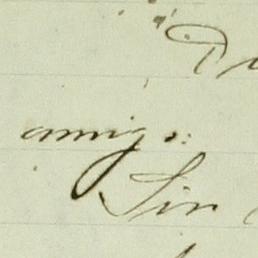 D
amigo:
Sin